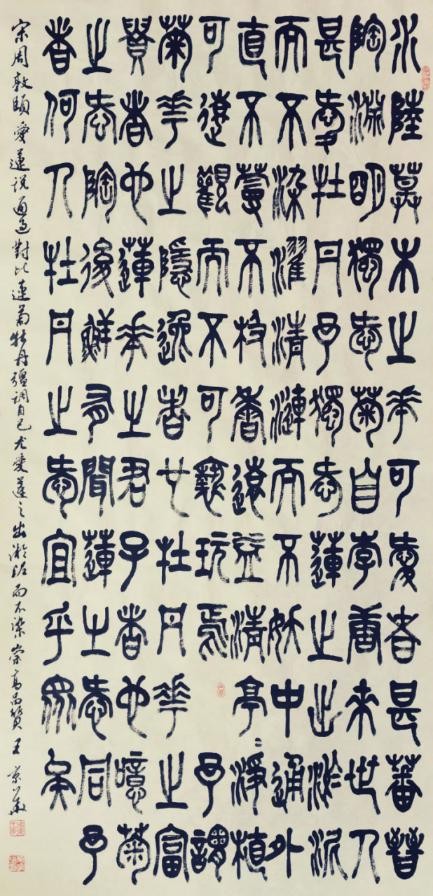 水陸草木之花可愛者甚蕃晉
陶淵明獨愛菊自李唐來世人
甚愛牡丹予獨愛蓮之出淤泥
而不染濯清漣而不妖中通外
直不蔓不枝香遠益清亭〻淨植
可遠觀而不可褻玩焉予謂
菊花之隱逸者也牡丹花之富
貴者也蓮花之君子者也噫菊
之愛陶後鮮有聞蓮之愛同予
者何人牡丹之愛宜乎眾矣
宋周敦頤愛蓮說通過對比蓮菊牡丹彊調自己尤愛蓮之出淤泥而不染崇高品質王